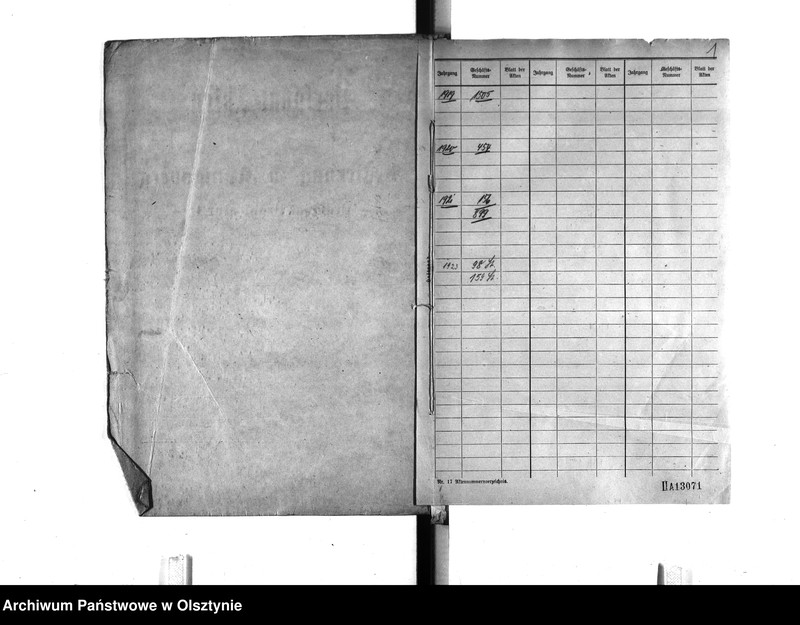 1
Jahrgang Geschäfts-Nummer Blatt der Akten Jahrgang Geschäfts-Nummer Blatt der Akten Jahrgang Geschäfts-Nummer Blatt der Akten
1919 1305
1920 457
1921 156
899
1923 98
151
Nr. 17 Aktennummerverzeichnis.
II A13071
Archiwum Państwowe w Olsztynie